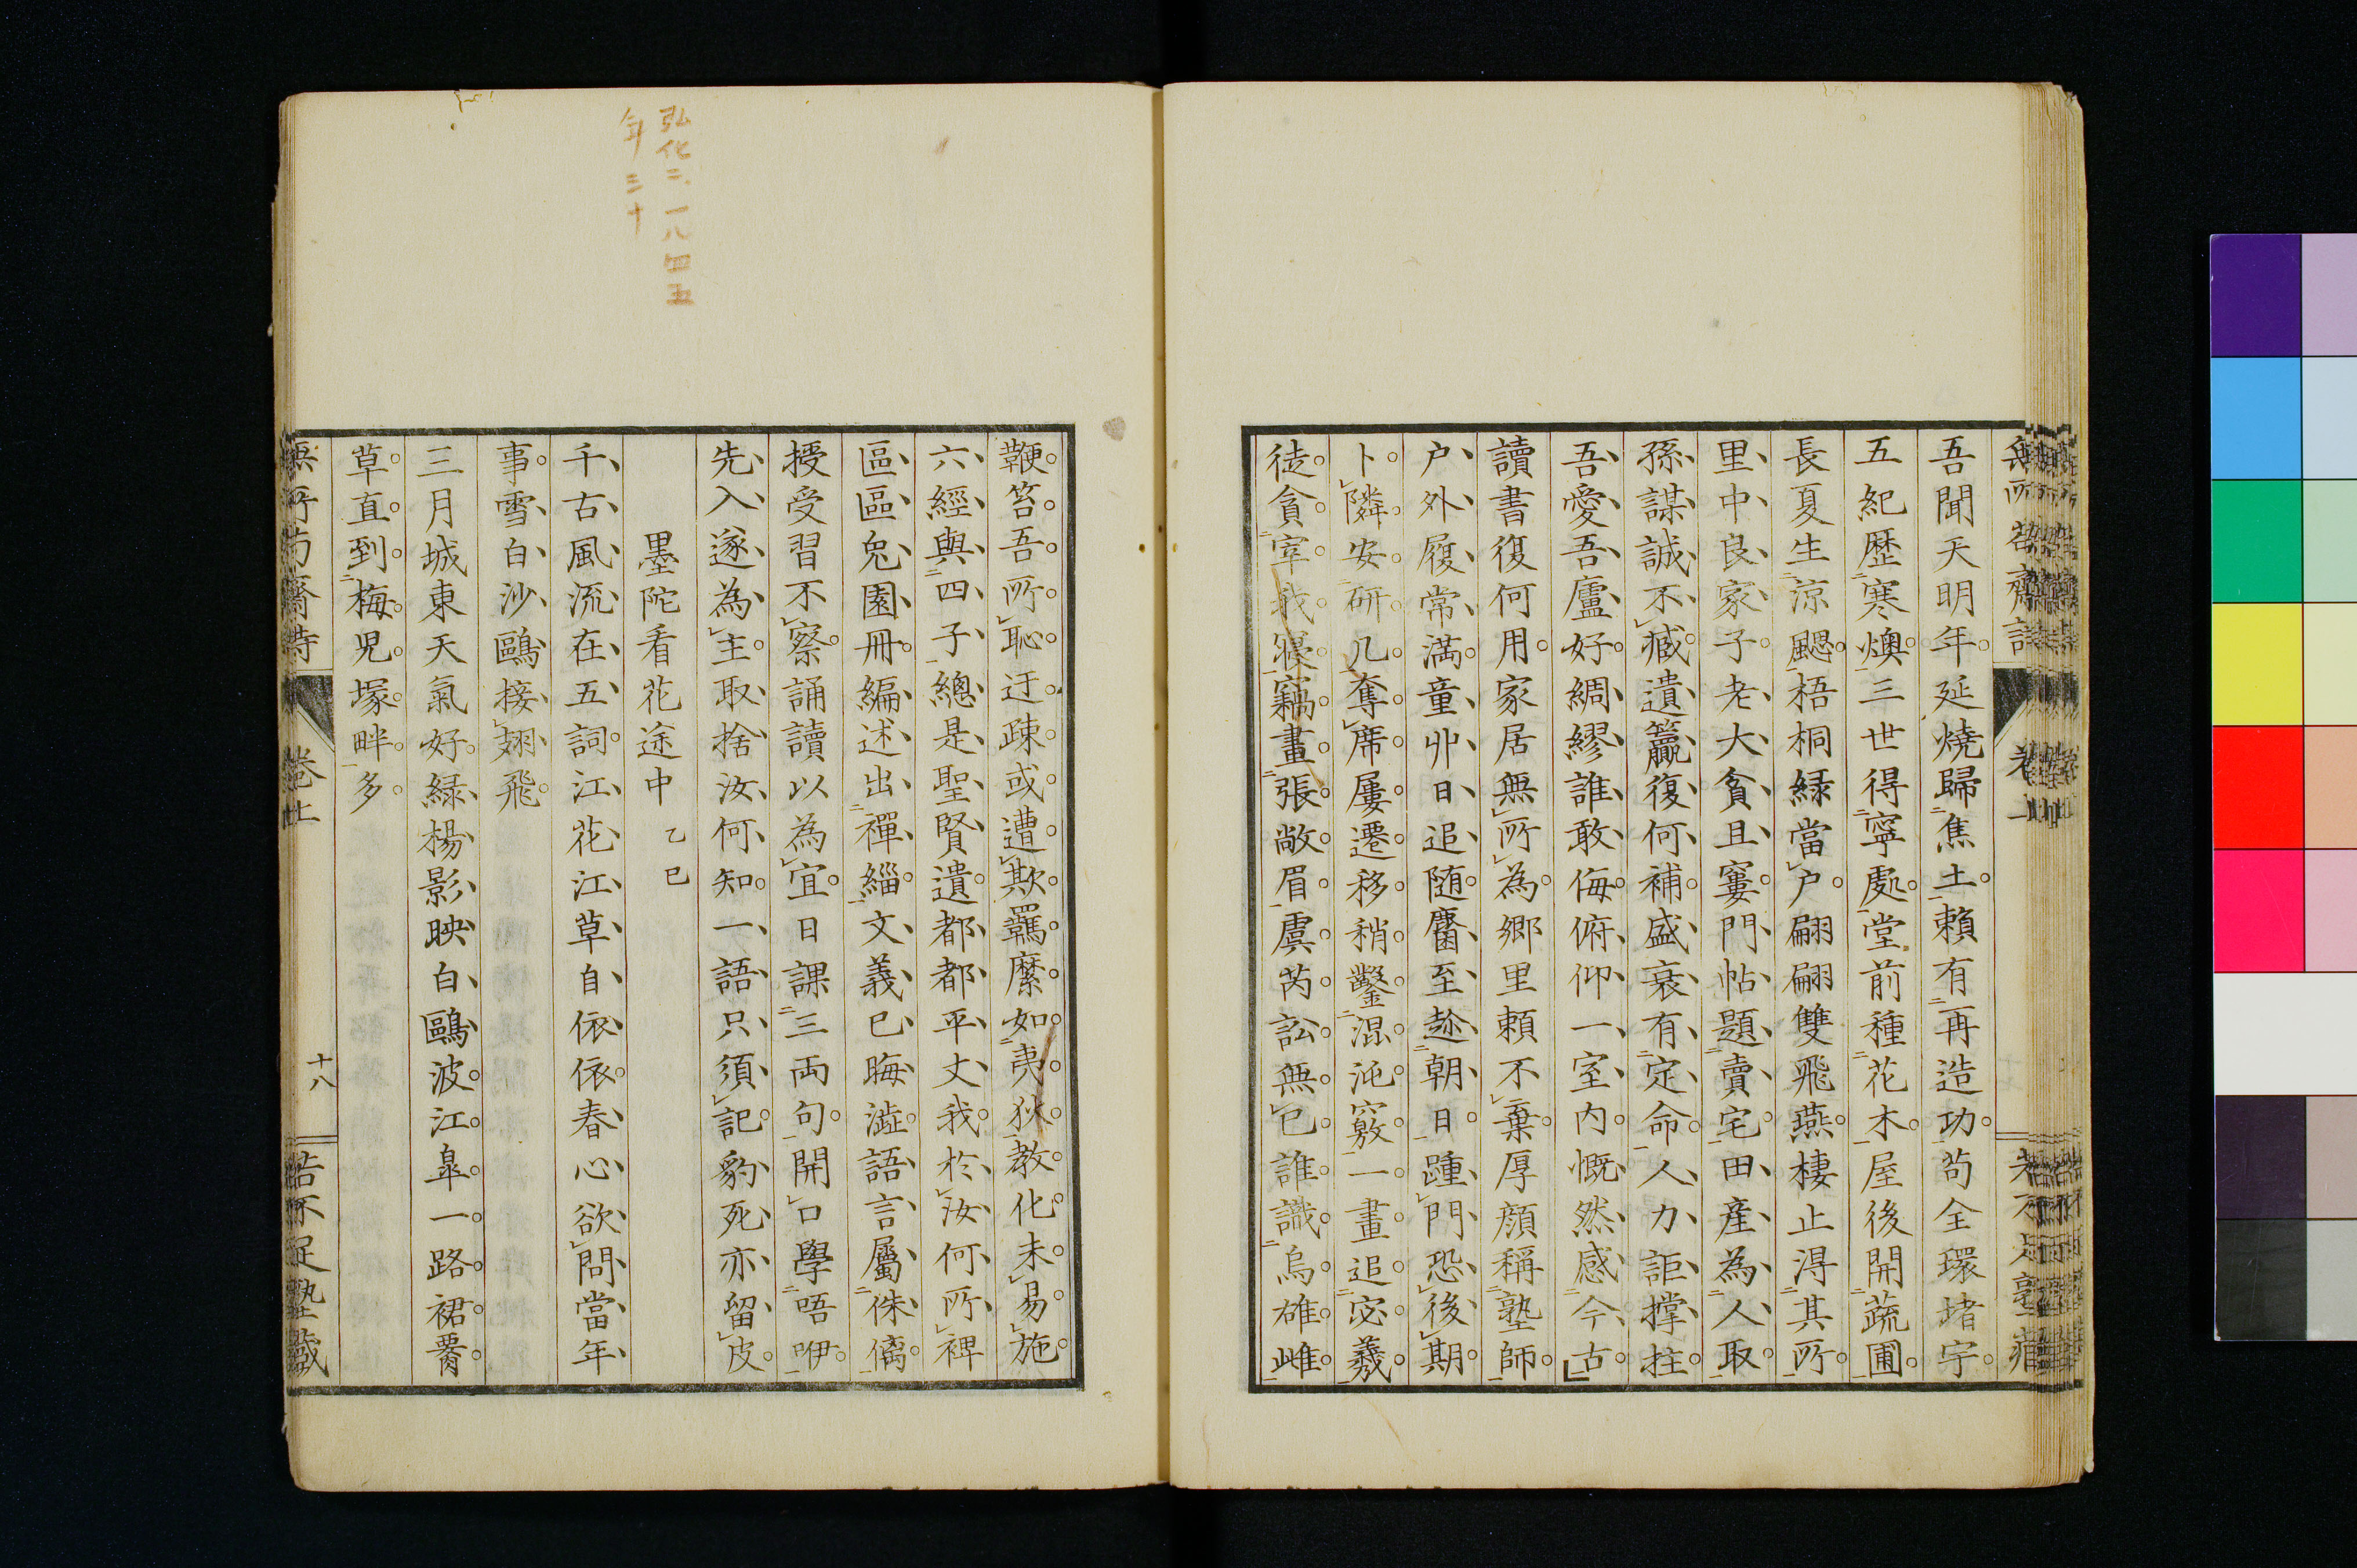 吾聞天明年延燒歸焦土賴有再造功苟全環堵宇
五紀歴寒燠三世得寧處堂前種花木屋後開蔬圃
長夏生涼颸梧桐緑當戸翩翩雙飛燕棲止得其所
里中良家子老大貧且窶門帖題賣宅田産為人取
孫謀誠不臧遺籯復何補盛衰有定命人力詎撑拄
吾愛吾廬好綢繆誰敢侮俯仰一室内慨然感今古
讀書復何用家居無所為鄉里賴不棄厚顔稱塾師
户外履常滿童丱日追随麕至趁朝日踵門恐後期
卜隣安研几奪席屢遷移稍鑿混沌竅一畫追宓羲
徒貪宰我寢竊畫張敞眉虞芮訟無已誰識烏雄雌
鞭笞吾所恥迂疎或遭欺羈縻如夷狄教化未易施
六經與四子總是聖賢遺都都平丈我於汝何所裨
區區兔園冊編述出禪緇文義已晦澁語言屬侏㒧
授受習不察誦讀以為宜日課三両句開口學唔咿
先入遂為主取捨汝何知一語只須記豹死亦留皮
墨陀看花途中 乙巳
千古風流在五詞江花江草自依依春心欲問當年
事雪白沙鷗接翅飛
三月城東天氣好緑楊影映白鷗波江皐一路裙腰
草直到梅児塚畔多
卷上
十八
弘化二一八四五
年三十